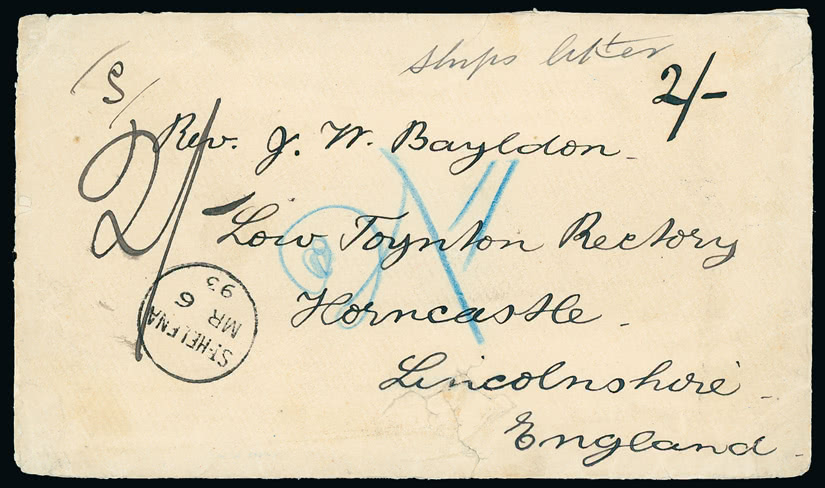 Ships letter
(S/
2/-
2/-
Rev. J. W. Bayldon
Low Toynton Rectory
Horncastle
Lincolnshire
England
ST. HELENA
MR 6
93